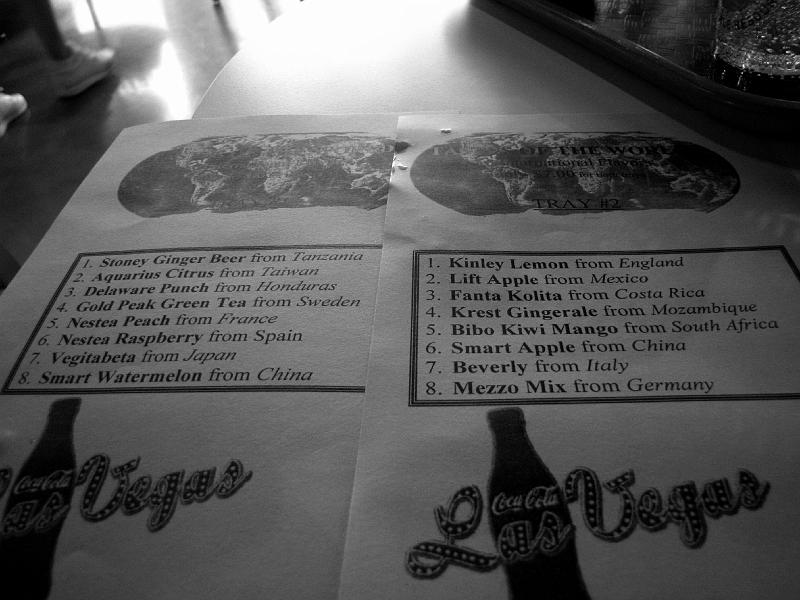 1. Stoney Ginger Beer from Tanzania
2. Aquarius Citrus from Taiwan
3. Delaware Punch from Honduras
4. Gold Peak Green Tea from Sweden
5. Nestea Peach from France
6. Nestea Raspberry from Spain
7. Vegitabeta from Japan
8. Smart Watermelon from China
Coca-Cola
Las Vegas
OF THE WORLD
International Flavors
$7.00 for
TRAY #2
1. Kinley Lemon from England
2. Lift Apple from Mexico
3. Fanta Kolita from Costa Rica
4. Krest Gingerale from Mozambique
5. Bibo Kiwi Mango from South Africa
6. Smart Apple from China
7. Beverly from Italy
8. Mezzo Mix from Germany
Coca-Cola
Las Vegas